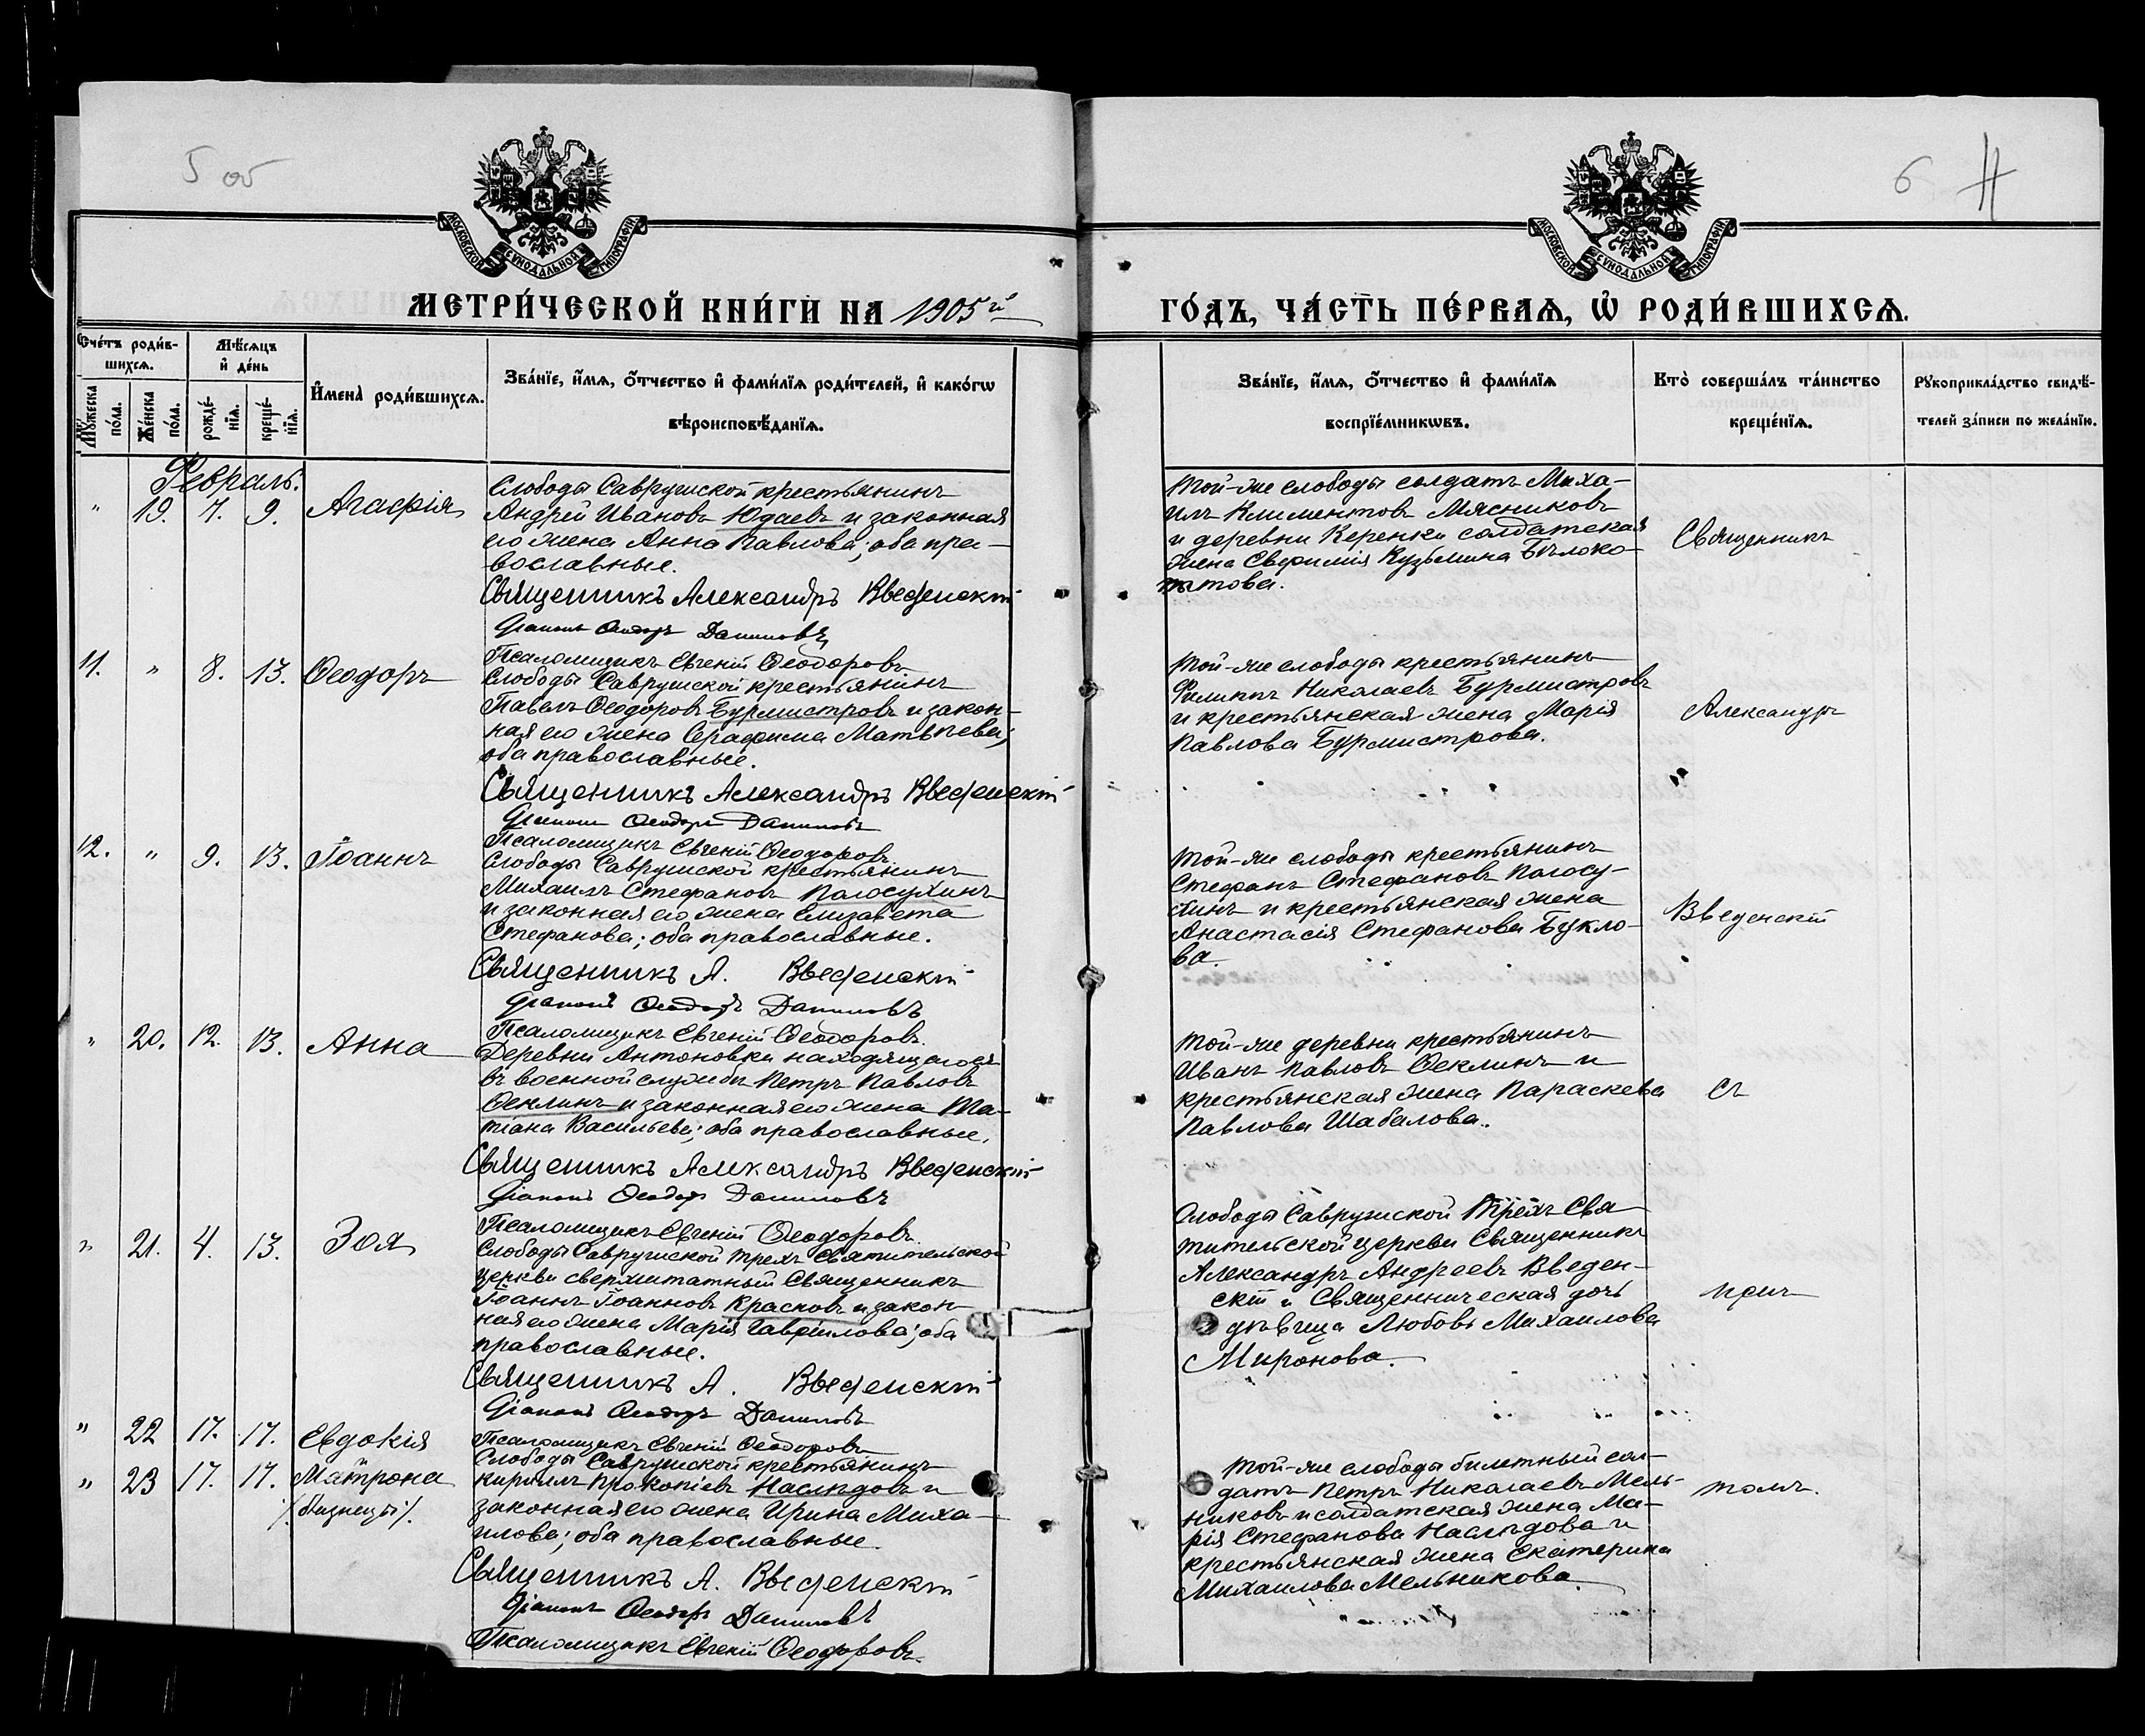 5 об
6
МОСКОВСКОЙ СѴНОДАЛЬНОЙ ТИПОГРАФІИ
МОСКОВСКОЙ СѴНОДАЛЬНОЙ ТИПОГРАФІИ
МЕТРИ́ЧЕСКОЙ КНИ́ГИ НА 1905й
ГО́ДЪ, ЧА́СТЬ ПЕ́РВАѦ, Ѡ҆ РОДИ́ВШИХСѦ.
Сче́тъ роди́в-
шихсѧ.
Мꙋ́жеска
по́ла.
Же́нска
по́ла.
Мѣ́сѧцъ
и҆ де́нь
рожде́-
нїѧ.
креще́-
нїѧ.
И҆мена̀ роди́вшихсѧ.
Зва́нїе, и҆́мѧ, ѻ҆́тчество и҆ фами́лїѧ роди́телей, и҆ како́гѡ
вѣроисповѣ́данїѧ.
Зва́нїе, и҆́мѧ, ѻ҆́тчество и҆ фами́лїѧ
воспрїе́мникѡвъ.
Кто̀ соверша́лъ та́инство
креще́нїѧ.
Рꙋкоприкла́дство свидѣ́-
телей за́писи по жела́нїю.
Февраль.
" 19. 7. 9. Агафія
Слободы Саврушской крестьянинъ
Андрей Ивановъ Юдаевъ и законная
его жена Анна Павлова; оба пра-
вославные.
Священникъ Александръ Введенскій
Діаконъ Ѳеодоръ Даниловъ
Псаломщикъ Евгеній Ѳеодоровъ
Той-же слободы солдатъ Миха-
илъ Климентовъ Мясниковъ
и деревни Керенки солдатская
жена Евфимія Кузьмина Бѣлоко-
пытова.
Священникъ
11. " 8. 13. Ѳеодоръ
Слободы Саврушской крестьянинъ
Павелъ Ѳеодоровъ Бурмистровъ и закон-
ная его жена Серафима Матвѣева;
оба православные.
Священникъ Александръ Введенскій
Діаконъ Ѳеодоръ Даниловъ
Псаломщикъ Евгеній Ѳеодоровъ
Той-же слободы крестьянинъ
Филиппъ Николаевъ Бурмистровъ
и крестьянская жена Марія
Павлова Бурмистрова.
Александръ
12. " 9. 13. Іоаннъ
Слободы Саврушской крестьянинъ
Михаилъ Стефановъ Полосухинъ
и законная его жена Елизавета
Стефанова; оба православные.
Священникъ А. Введенскій
Діаконъ Ѳеодоръ Даниловъ
Псаломщикъ Евгеній Ѳеодоровъ.
Той-же слободы крестьянинъ
Стефанъ Стефановъ Полосу-
хинъ и крестьянская жена
Анастасія Стефанова Букло-
ва.
Введенскій
" 20. 12. 13. Анна
Деревни Антоновки находящагося
въ военной службѣ Петръ Павловъ
Ѳеклинъ и законная его жена Та-
тіана Васильева; оба православные.
Священникъ Александръ Введенскій
Діаконъ Ѳеодоръ Даниловъ
Псаломщикъ Евгеній Ѳеодоровъ.
Той-же деревни крестьянинъ
Иванъ Павловъ Ѳеклинъ и
крестьянская жена Параскева
Павлова Шабалова.
съ
" 21. 4. 13. Зоя
Слободы Саврушской Трехъ Святительской
церкви сверхштатный Священникъ
Іоаннъ Іоанновъ Красновъ и закон-
ная его жена Марія Гавріилова; оба
православные.
Священникъ А. Введенскій
Діаконъ Ѳеодоръ Даниловъ
Псаломщикъ Евгеній Ѳеодоровъ
Слободы Саврушской Трехъ Свя-
тительской церкви Священникъ
Александръ Андреевъ Введен-
скій и Священническая дочь
дѣвица Любовь Михаилова
Миронова.
прич
" 22 17. 17. Евдокія
" 23 17. 17. Матрона
/близнецы/.
Слободы Саврушской крестьянинъ
Кириллъ Прокопіевъ Наслѣдовъ и
законная его жена Ирина Миха-
илова; оба православные.
Священникъ А. Введенскій
Діаконъ Ѳеодоръ Даниловъ
Псаломщикъ Евгеній Ѳеодоровъ.
Той-же слободы билетный сол-
датъ Петръ Николаевъ Мель-
никовъ и солдатская жена Ма-
рія Стефанова Наслѣдова и
крестьянская жена Екатерина
Михаилова Мельникова.
томъ.